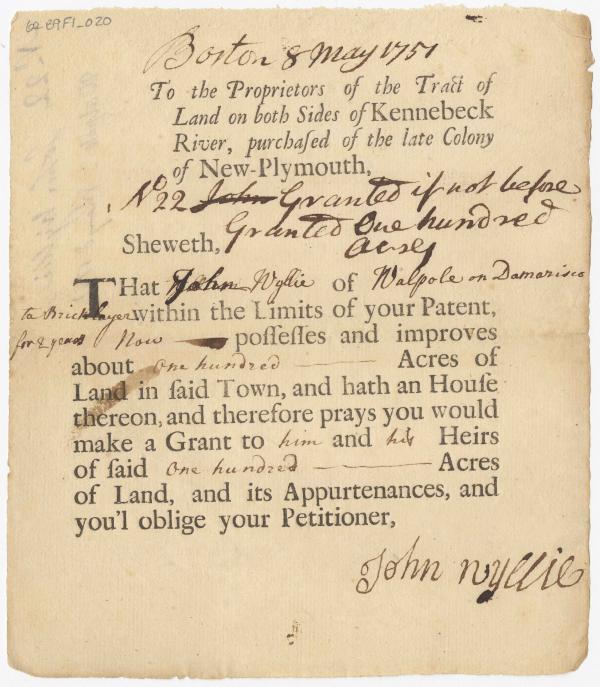 62 E9F1_020
Boston 8 May 1751
To the Proprietors of the Tract of
Land on both Sides of Kennebeck
River, purchaſed of the late Colony
of New-Plymouth,
No 22 John Granted if not before
Granted One hundred
Acres
Sheweth,
THat John Wyllie of Walpole on Damarisco
ta Bricklayer within the Limits of your Patent,
for 2 years Now poſſeſſes and improves
about one hundred Acres of
Land in ſaid Town, and hath an Houſe
thereon, and therefore prays you would
make a Grant to him and his Heirs
of ſaid one hundred Acres
of Land, and its Appurtenances, and
you'l oblige your Petitioner,
John Wyllie